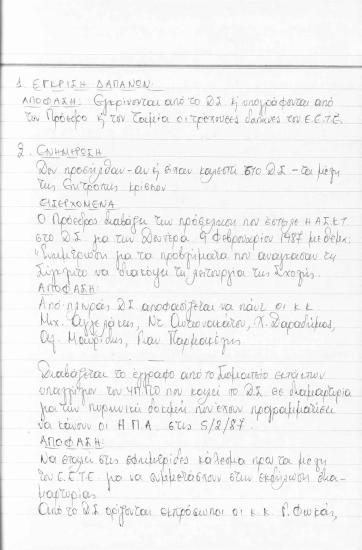 1. ΕΓΚΡΙΣΗ ΔΑΠΑΝΩΝ
ΑΠΟΦΑΣΗ: Εγκρίνονται από το Δ.Σ. ή υπογράφονται από
τον Πρόεδρο ή τον Ταμία οι τρέχουσες δαπάνες του Ε.Ε.Τ.Ε.
2. ΕΝΗΜΕΡΩΣΗ
Δεν προσήλθαν - αν ή είχαν καλεστεί στο Δ.Σ. - τα μέλη
της Επιτροπής κρίσεων
ΕΙΣΕΡΧΟΜΕΝΑ
Ο Πρόεδρος διαβάζει την πρόσκληση που έστειλε η ΑΣΚΤ
στο Δ.Σ. για την Δευτέρα 9 Φεβρουαρίου 1987 με θέμα:
"Ενημέρωση για τα προβλήματα που ανάγκασαν τη
Σύγκλητο να διακόψει τη λειτουργία της Σχολής.
ΑΠΟΦΑΣΗ:
Από πλευράς Δ.Σ. αποφασίζεται να πάνε οι κ.κ.
Μιχ. Αγγελάκης, Ντ. Χ. Δαραδήμος,
Αγ. Μαυρίδης, Γιαν. Παρμακέλης
Διαβάζεται το έγγραφο από το Σωματείο εκτάκτων
υπαλλήλων του ΥΠΠΟ που καλεί το Δ.Σ. σε διαμαρτυρία
για την πυρηνική δοκιμή που έχουν προγραμματίσει
να κάνουν οι Η.Π.Α. στις 5/2/87.
ΑΠΟΦΑΣΗ:
Να σταλεί στις εφημερίδες κάλεσμα προς τα μέλη
του Ε.Ε.Τ.Ε. για να συμμετάσχουν στην εκδήλωση δια-
μαρτυρίας
Από το Δ.Σ. ορίζονται εκπρόσωποι οι κ.κ. Γ. Φωκάς,